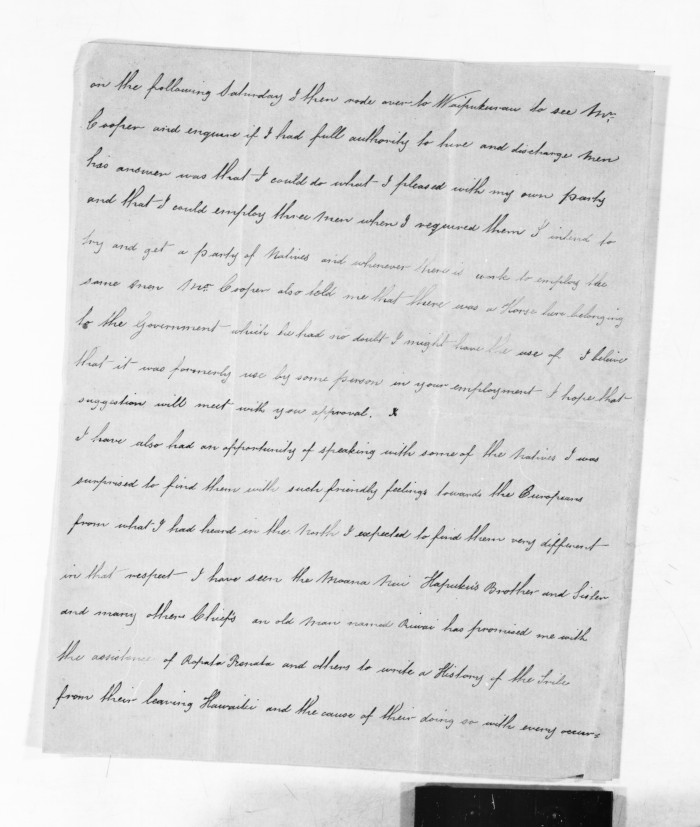 on the following Saturday I then rode over to Waipukurau to see Mr.
Cooper and enquire if I had full authority to hire and discharge men
his answer was that I could do what I pleased with my own party
and that I could employ three men when I required them I intend to
try and get a party of Natives and whenever there is work to employ the
same men Mr. Cooper also told me that there was a Horse here belonging
to the Government which he had no doubt I might have the use of I believe
that it was formerly use by some person in your employment I hope that
suggestion will meet with you approval. x
I have also had an opportunity of speaking with some of the Natives I was
surprised to find them with such friendly feelings towards the Europeans
from what I had heard in the North I expected to find them very different
in that respect I have seen the Moana Nui Hapuku's Brother and Sister
and many others Chiefs an old man named Riwai has promised me with
the assistance of Renata and others to write a History of the Tribe
from their leaving Hawaiki and the cause of their doing so with every occur=